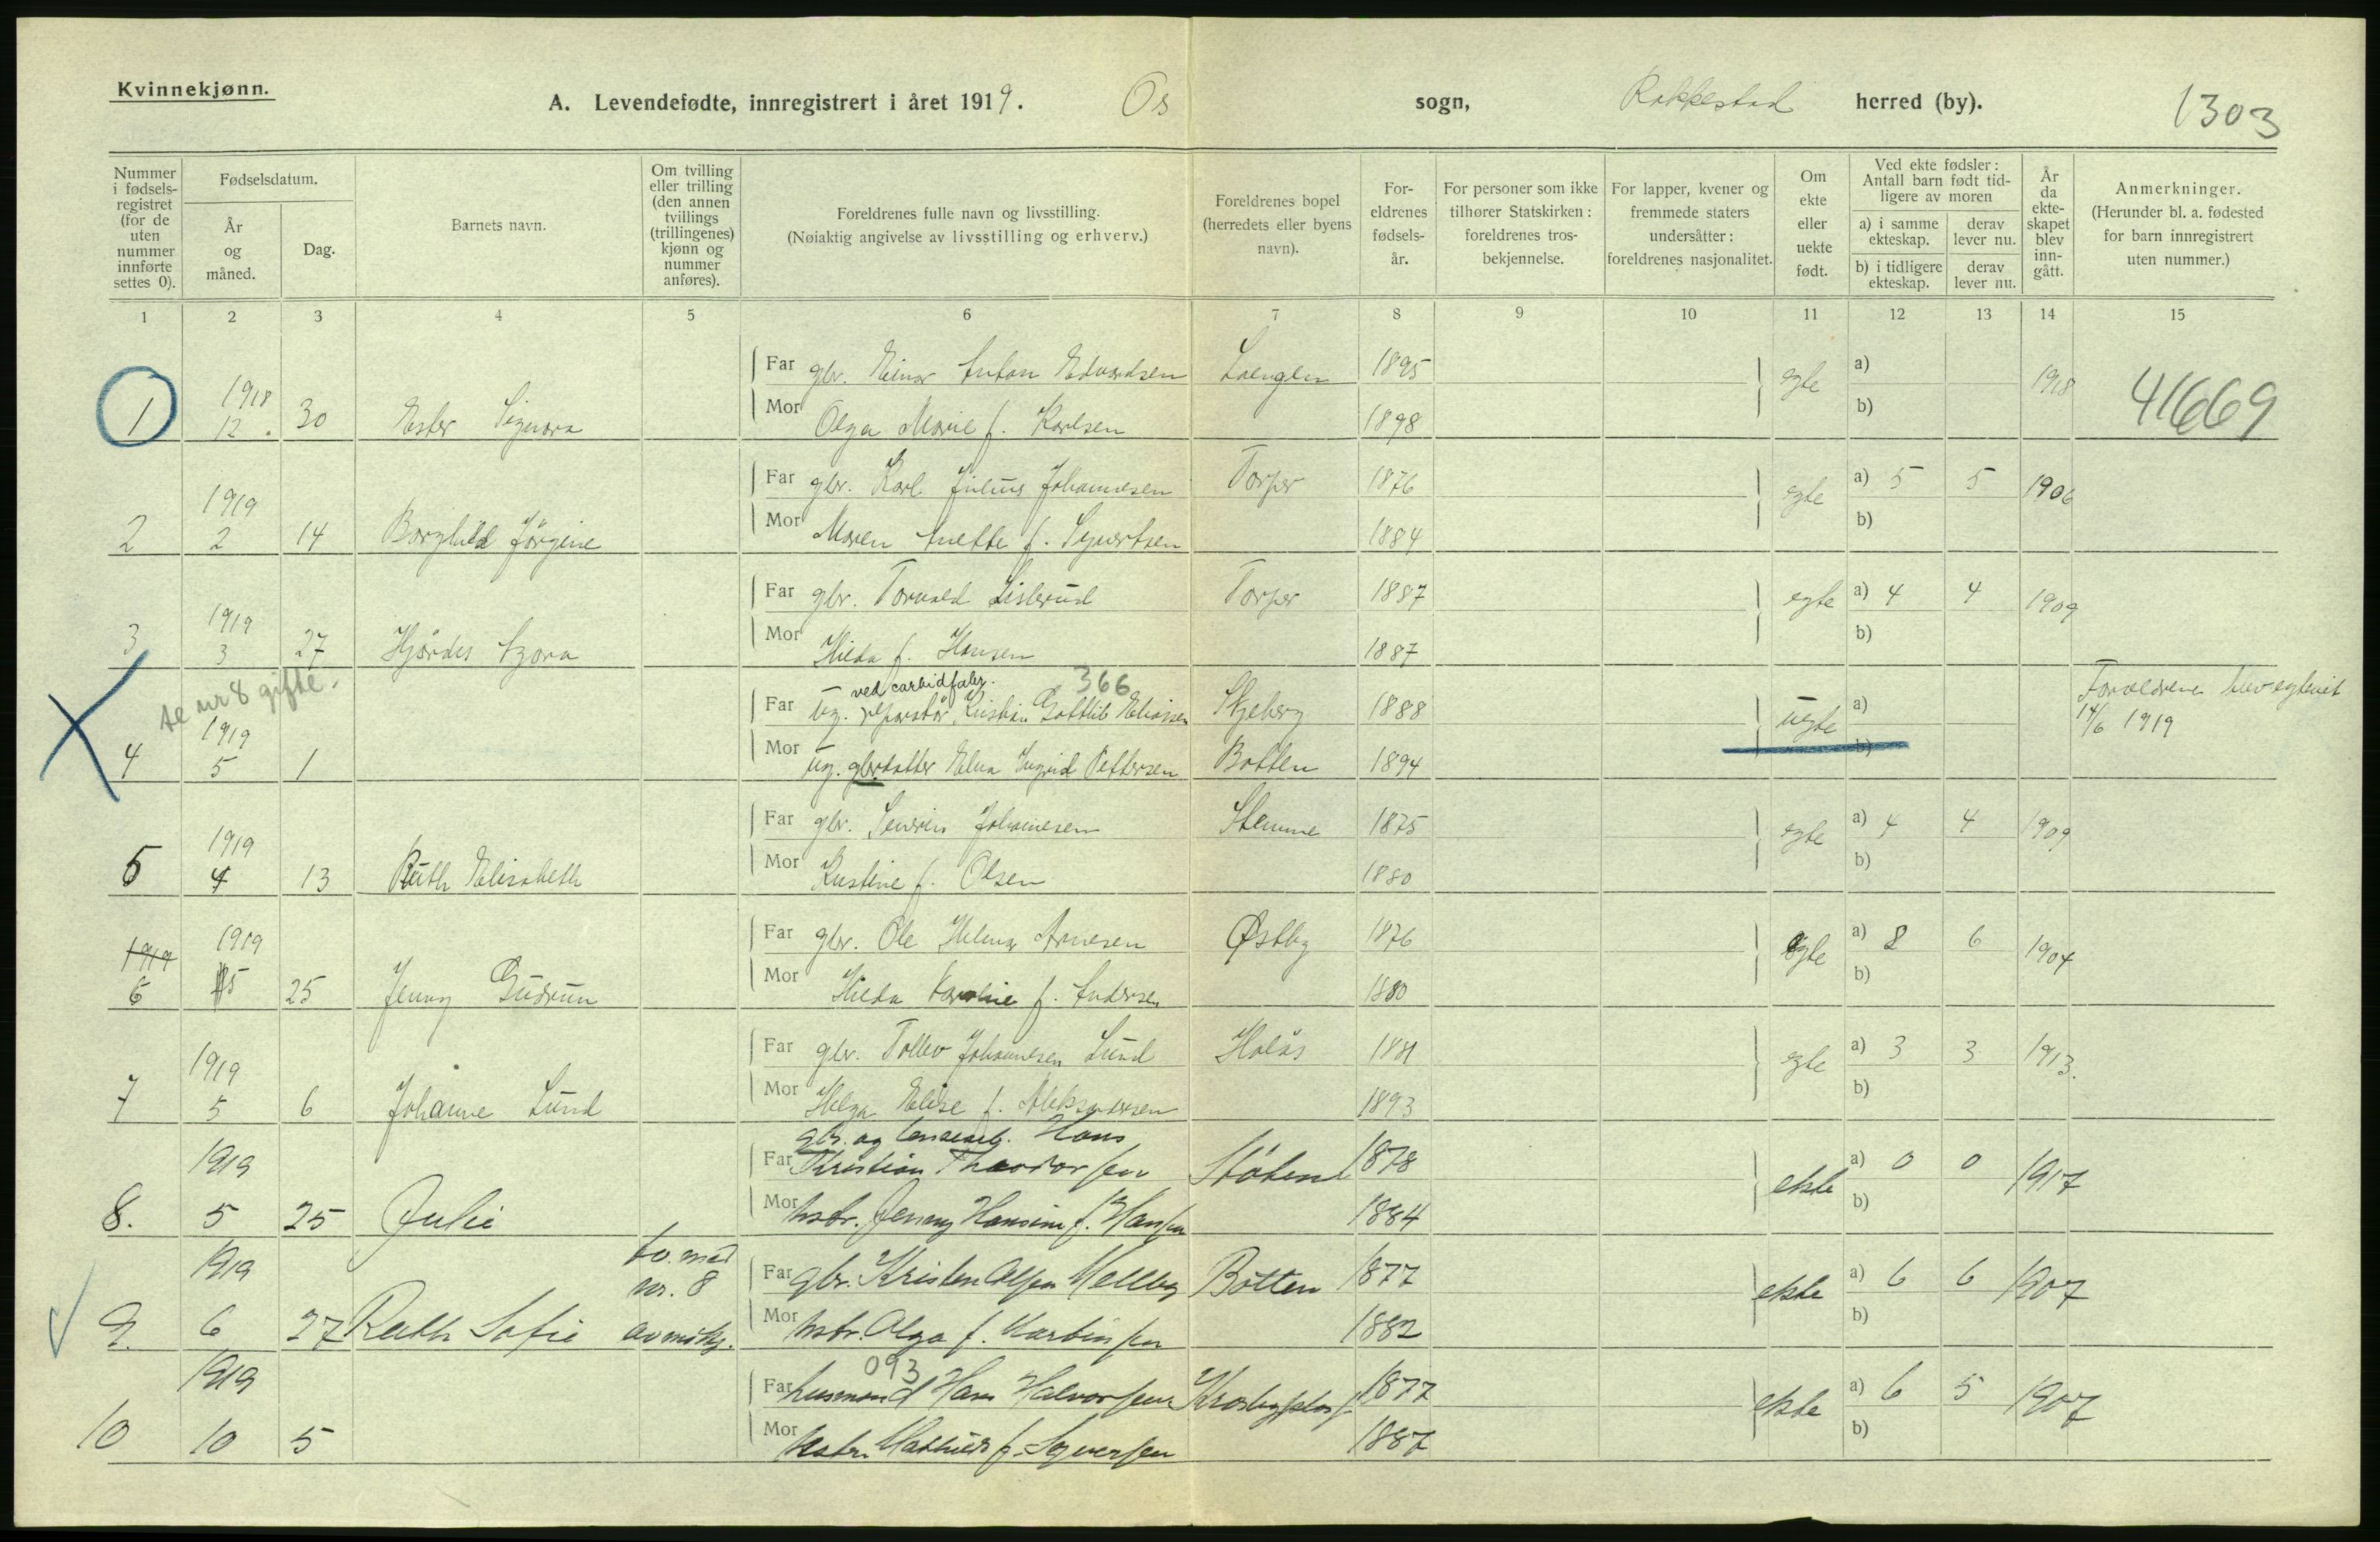 Kvinnekjønn.
A. Levendefødte, innregistrert i året 1919. Os sogn, Rakkestad herred (by). 1303
Nummer i fødsels-registret (for de uten nummer innførte settes 0).
Fødselsdatum.
År og måned.
Dag.
Barnets navn.
Om tvilling eller trilling (den annen tvillings (trillingenes) kjønn og nummer anføres).
Foreldrenes fulle navn og livsstilling.
(Nøiaktig angivelse av livsstilling og erhverv.)
Foreldrenes bopel (herredets eller byens navn).
For-eldrenes fødsels-år.
For personer som ikke tilhører Statskirken: foreldrenes tros-bekjennelse.
For lapper, kvener og fremmede staters undersåtter: foreldrenes nasjonalitet.
Om ekte eller uekte født.
Ved ekte fødsler: Antall barn født tid-ligere av moren
a) i samme ekteskap. derav lever nu.
b) i tidligere ekteskap. derav lever nu.
År da ekte-skapet blev inn-gått.
Anmerkninger.
(Herunder bl. a. fødested for barn innregistrert uten nummer.)
1 2 3 4 5 6 7 8 9 10 11 12 13 14 15
Far gbr. Einar Anton Edvardsen 1895 egte a) 1918 41669
1 1918 12. 30 Ester Signora Mor Olga Marie f. Karlsen 1898 b)
Far gbr. Karl Julius Johannesen Torper 1876 egte a) 5 5 1906
2 1919 2 14 Borghild Jörgine Mor Maren Anette f. Syvertsen 1884 b)
Far gbr. Torvald Lislerud Torper 1887 egte a) 4 4 1909
3 1919 3 27 Hjördis Agora Mor Hilda f. Hansen 1887 b)
se nr 8 gifte.
ved carbidfabr. 366
Far ug. reparatör Kristian Gottlib Eliassen Skjeberg 1888 uegte a) Foreldrene blev egteviet 14/6 1919
4 1919 5 1 Mor ug. gbrdatter Elna Ingrid Pettersen Botten 1894 b)
Far gbr. Severin Johannesen Stemme 1875 egte a) 4 4 1909
5 1919 4 13 Ruth Elisabeth Mor Kristine f. Olsen 1880 b)
Far gbr. Ole Helmer Arnesen Østby 1876 egte a) 8 6 1904
1919
6 1919 5 25 Jenny Gudrun Mor Hilda Karoline f. Andersen 1880 b)
Far gbr. Tollev Johannesen Lund Holås 1881 egte a) 3 3 1913.
7 1919 5 6 Johanne Lund Mor Helga Elise f. Aleksandersen 1893 b)
gbr. og Hans
Far Kristian Theodorsen 1878 ekte a) 0 0 1917
8. 1919 5 25 Julie Mor hstr. Jenny Hansine f. Hansen 1884 b)
tv. med nr. 8 av mktj.
Far gbr. Kristen Olsen Melleby Botten 1877 ekte a) 6 6 1907
9. 1919 6 27 Ruth Sofie Mor hstr. Olga f. Martinsen 1882 b)
093
Far husmand Hans Halvorsen Krosbyplas 1877 ekte a) 6 5 1907
10 1919 10 5 Mor hstr. Mathilde f. Syversen 1887 b)